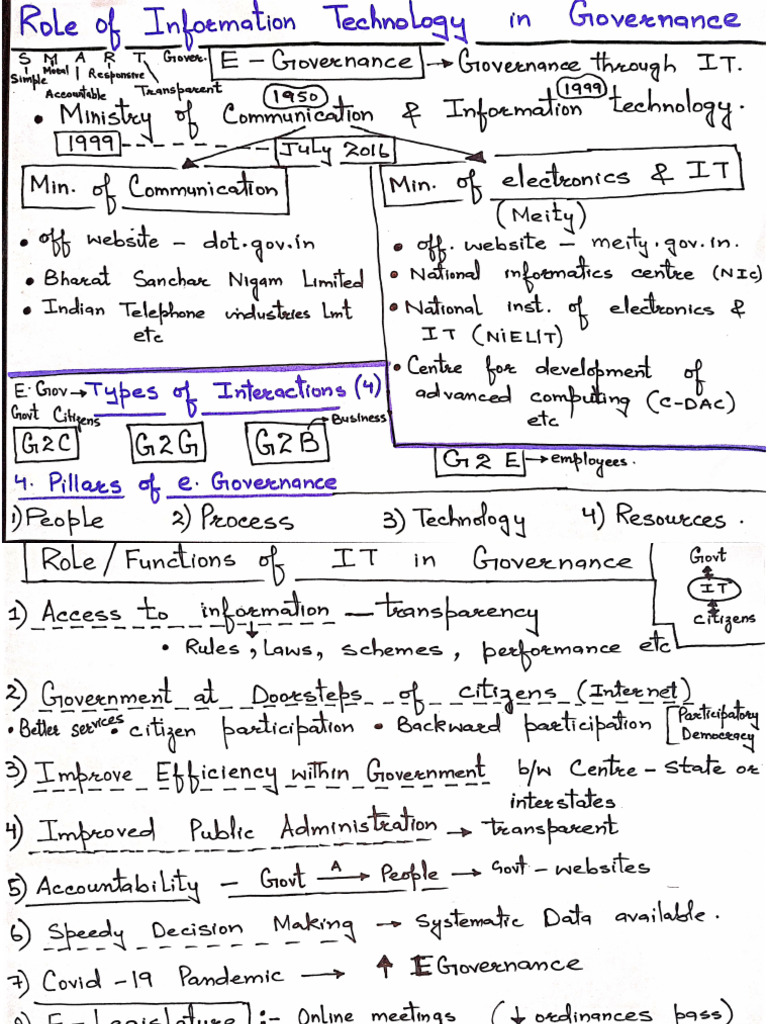 Role of Information Technology in Governance
S M A R T Gover. E - Governance → Governance through IT.
Simple Moral Accountable Responsive Transparent
1950 1999
• Ministry of Communication & Information technology.
1999 July 2016
Min. of Communication
• off website - dot.gov.in
• Bharat Sanchar Nigam Limited
• Indian Telephone industries Lmt
etc
Min. of electronics & IT
(Meity)
• off. website - meity.gov.in.
• National informatics centre (NIC)
• National inst. of electronics &
IT (NiELIT)
• Centre for development of
advanced computing (C-DAC)
etc
E. Gov → Types of Interactions (4)
Govt Citizens Business
G2C G2G G2B
G2E → employees.
4. Pillars of e. Governance
1) People 2) Process 3) Technology 4) Resources.
Role / Functions of IT in Governance
Govt
IT
citizens
1) Access to information - transparency
• Rules, Laws, schemes, performance etc
2) Government at Doorsteps of citizens (Internet)
• Better services • citizen participation • Backward participation [Participatory
Democracy
3) Improve Efficiency within Government b/w Centre - State or
interstates
4) Improved Public Administration → transparent
5) Accountability - Govt A→ People → Govt - websites
6) Speedy Decision Making → Systematic Data available.
7) Covid - 19 Pandemic → ↑ EGovernance
8) E - Legislature :- Online meetings (↓ ordinances pass)